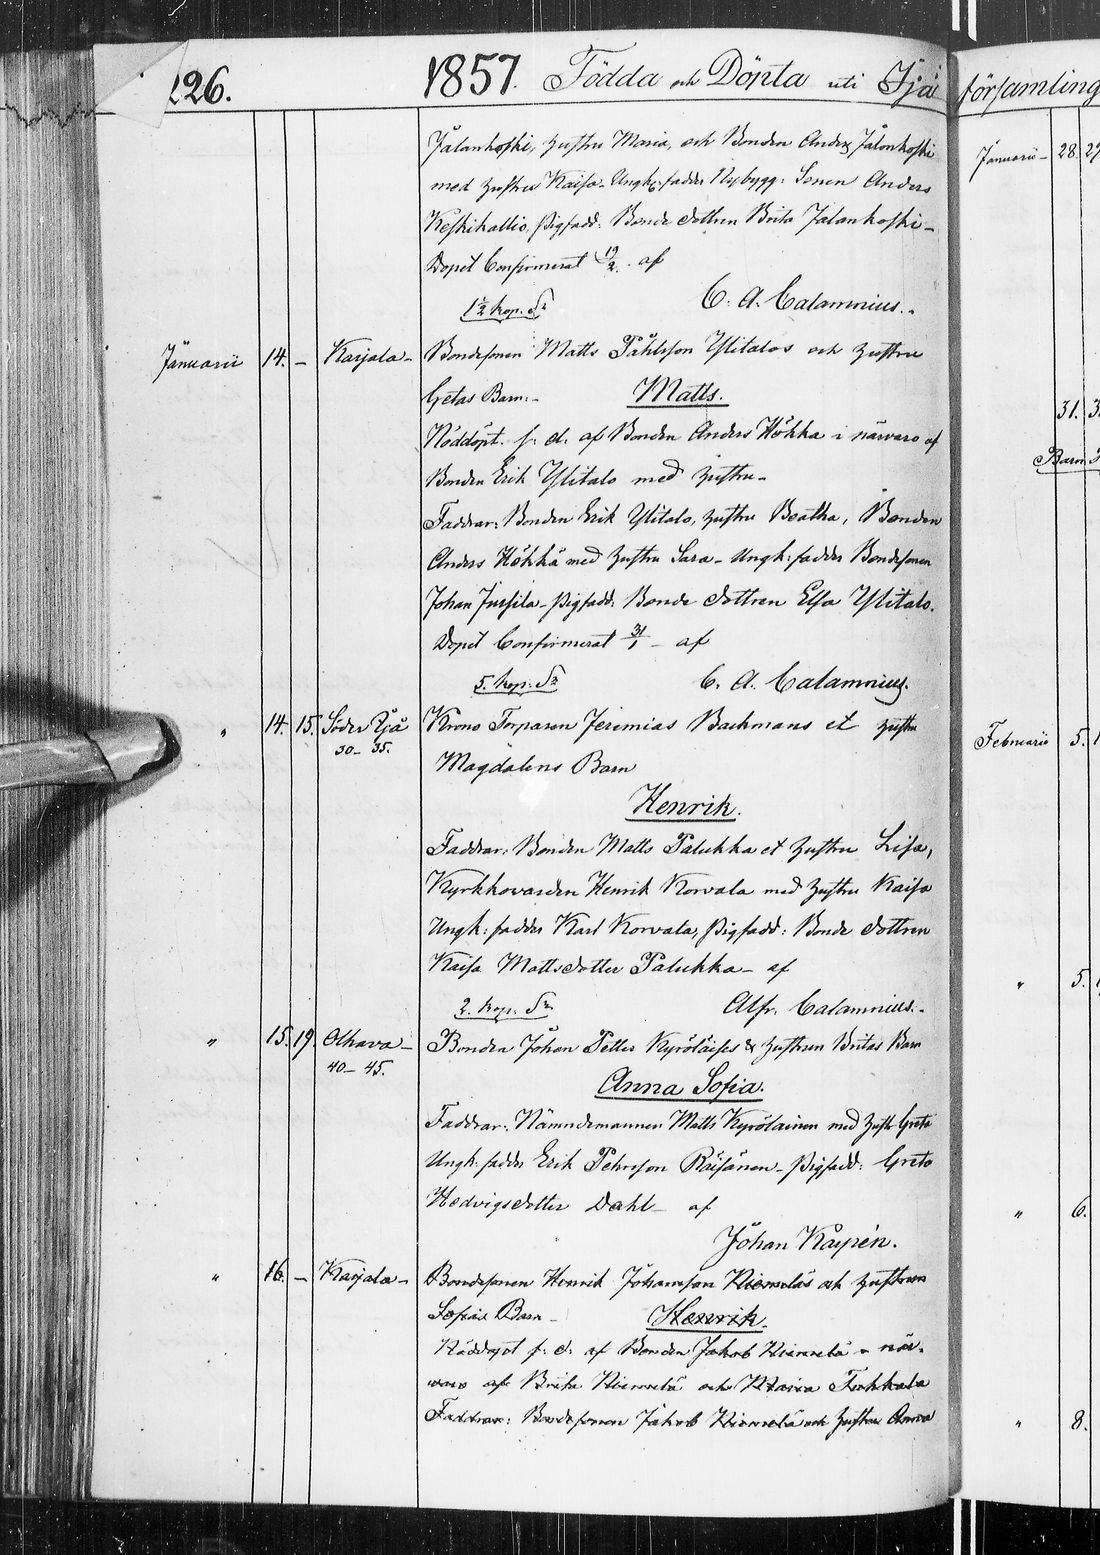 226.
1857. Födda och Döpta uti Ijå församling
Jålankoski, hustru Maria, och Bonden Anders Jålonkoski
med hustru Kaisa. Ungk: fadder Nybygg: Sonen Anders
Keskikallio, Pigfadd: Bonde dottren Brita Jalankoski –
Dopet Confirmerat 19/2 af
1 1/2 kop. Sr C. A. Calamnius.
Januarii 14. – Karjala – Bondesonen Matts Påhlsson Ylitalos och hustru
Gretas Barn: – Matts.
Nöddöpt s. d. af Bonden Anders Hökkä i närvaro af
Bonden Erik Ylitalo med hustru –
Faddrar: Bonden Erik Ylitalo, hustru Beatha, Bonden
Anders Hökkä med hustru Sara – Ungk: fadder Bondesonen
Johan Jussila – Pigfadd: Bonde dottren Elsa Ylitalo.
Dopet Confirmerat 31/1 – af
5. kop. Sr C. A. Calamnius.
" 14. 15. Söder Ijå Krono Torparen Jeremias Backmans et hustru
30 – 35.
Magdalens Barn
Henrik.
Faddrar: Bonden Matts Palukka et hustru Lisa,
Kyrkkovärden Henrik Korvala med hustru Kaisa
Ungk: fadder Karl Korvala, Pigfadd: Bonde dottren
Kaisa Mattsdotter Palukka – af
2. kop. Sr Alfr. Calamnius.
" 15. 19. Olhava – Bonden Johan Petter Kyröläises & hustrun Britas Barn
40 – 45.
Anna Sofia.
Faddrar: Nämndemannen Matts Kyröläinen med hustr Greta
Ungk: fadder Erik Pehrsson Räisänen – Pigfadd: Greta
Hedvigsdotter Dahl – af
Johan Kåpén.
" 16. – Karjala – Bondesonen Henrik Johansson Niemeläs och hustrun
Sofias Barn – Henrik.
Nöddöpt s. d. af Bonden Jakob Niemelä i när-
varo af Brita Niemelä och Maria Tuhkala
Faddrar: Bondesonen Jakob Niemelä och hustru Anna
Januarii – 28.
31.
Barn
Februarii 5.
" 5.
" 6.
" 8.